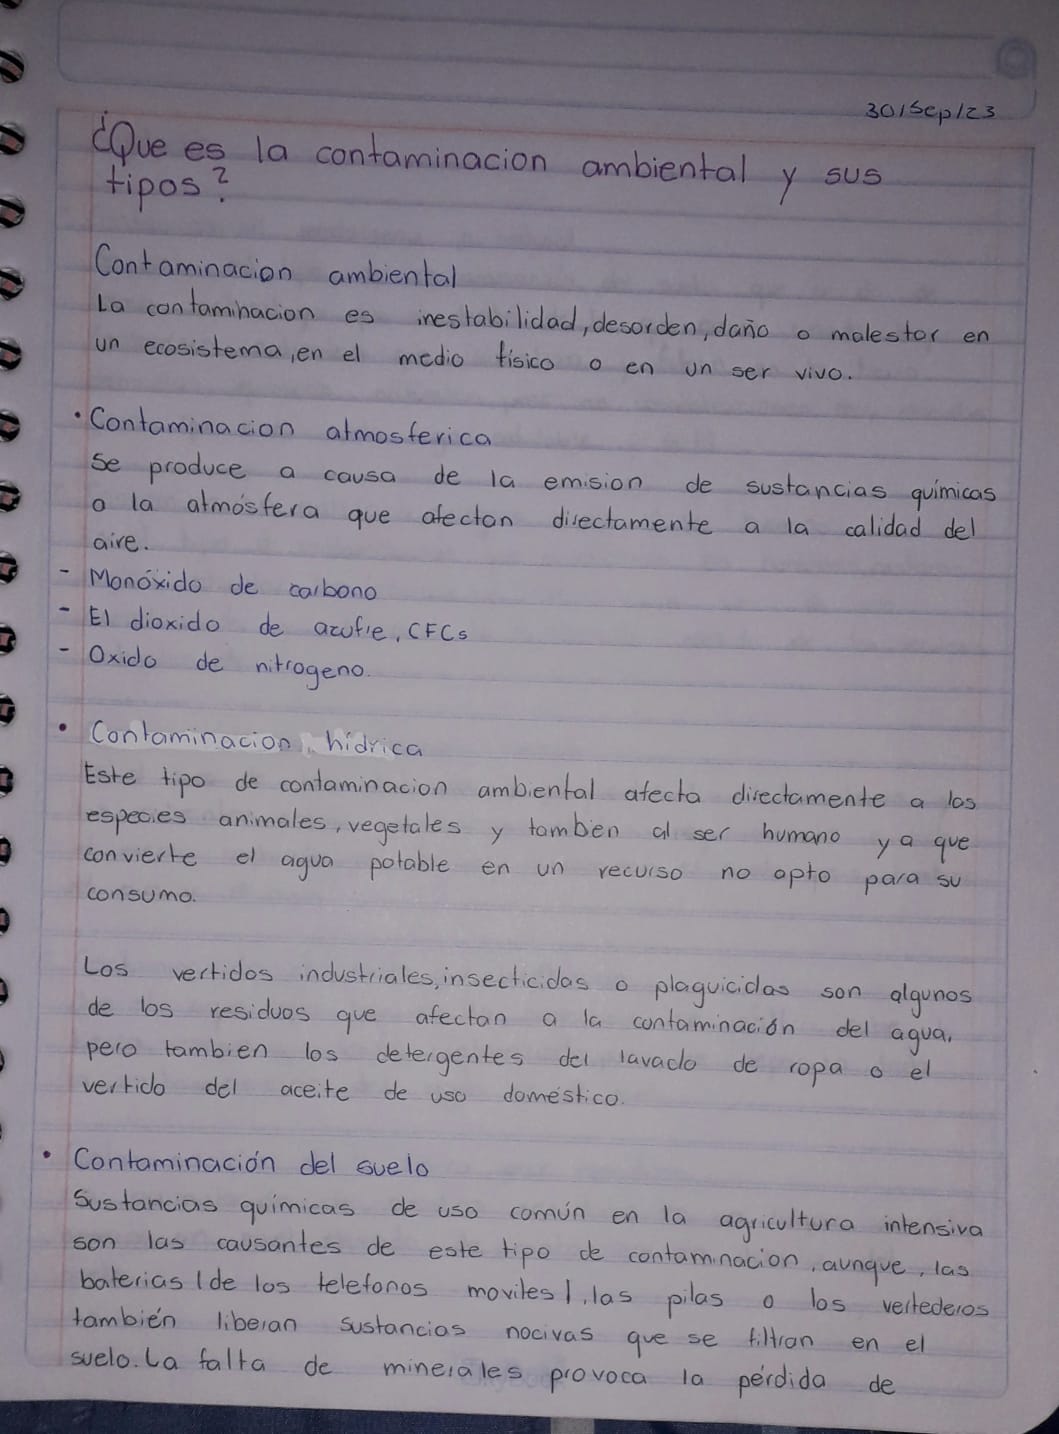 30/Sep/23
¿Que es la contaminacion ambiental y sus
tipos?
Contaminacion ambiental
La contaminacion es inestabilidad, desorden, daño o malestar en
un ecosistema, en el medio físico o en un ser vivo.
• Contaminacion atmosferica
Se produce a causa de la emision de sustancias químicas
a la atmósfera que afectan directamente a la calidad del
aire.
- Monóxido de carbono
- El dioxido de azufre, CFCs
- Oxido de nitrogeno.
• Contaminacion hídrica
Este tipo de contaminacion ambiental afecta directamente a las
especies animales, vegetales y tambien al ser humano ya que
convierte el agua potable en un recurso no apto para su
consumo.
Los vertidos industriales, insecticidas o plaguicidas son algunos
de los residuos que afectan a la contaminación del agua,
pero tambien los detergentes del lavado de ropa o el
vertido del aceite de uso doméstico.
• Contaminación del suelo
Sustancias químicas de uso común en la agricultura intensiva
son las causantes de este tipo de contaminacion, aunque, las
baterias (de los telefonos moviles), las pilas o los vertederos
también liberan sustancias nocivas que se filtran en el
suelo. La falta de minerales provoca la pérdida de